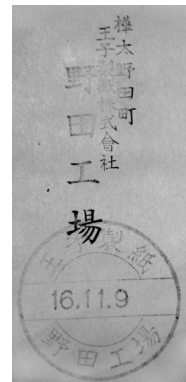 樺太野田町
王子製紙株式會社
野田工場
王子製紙
16.11.9
野田工場